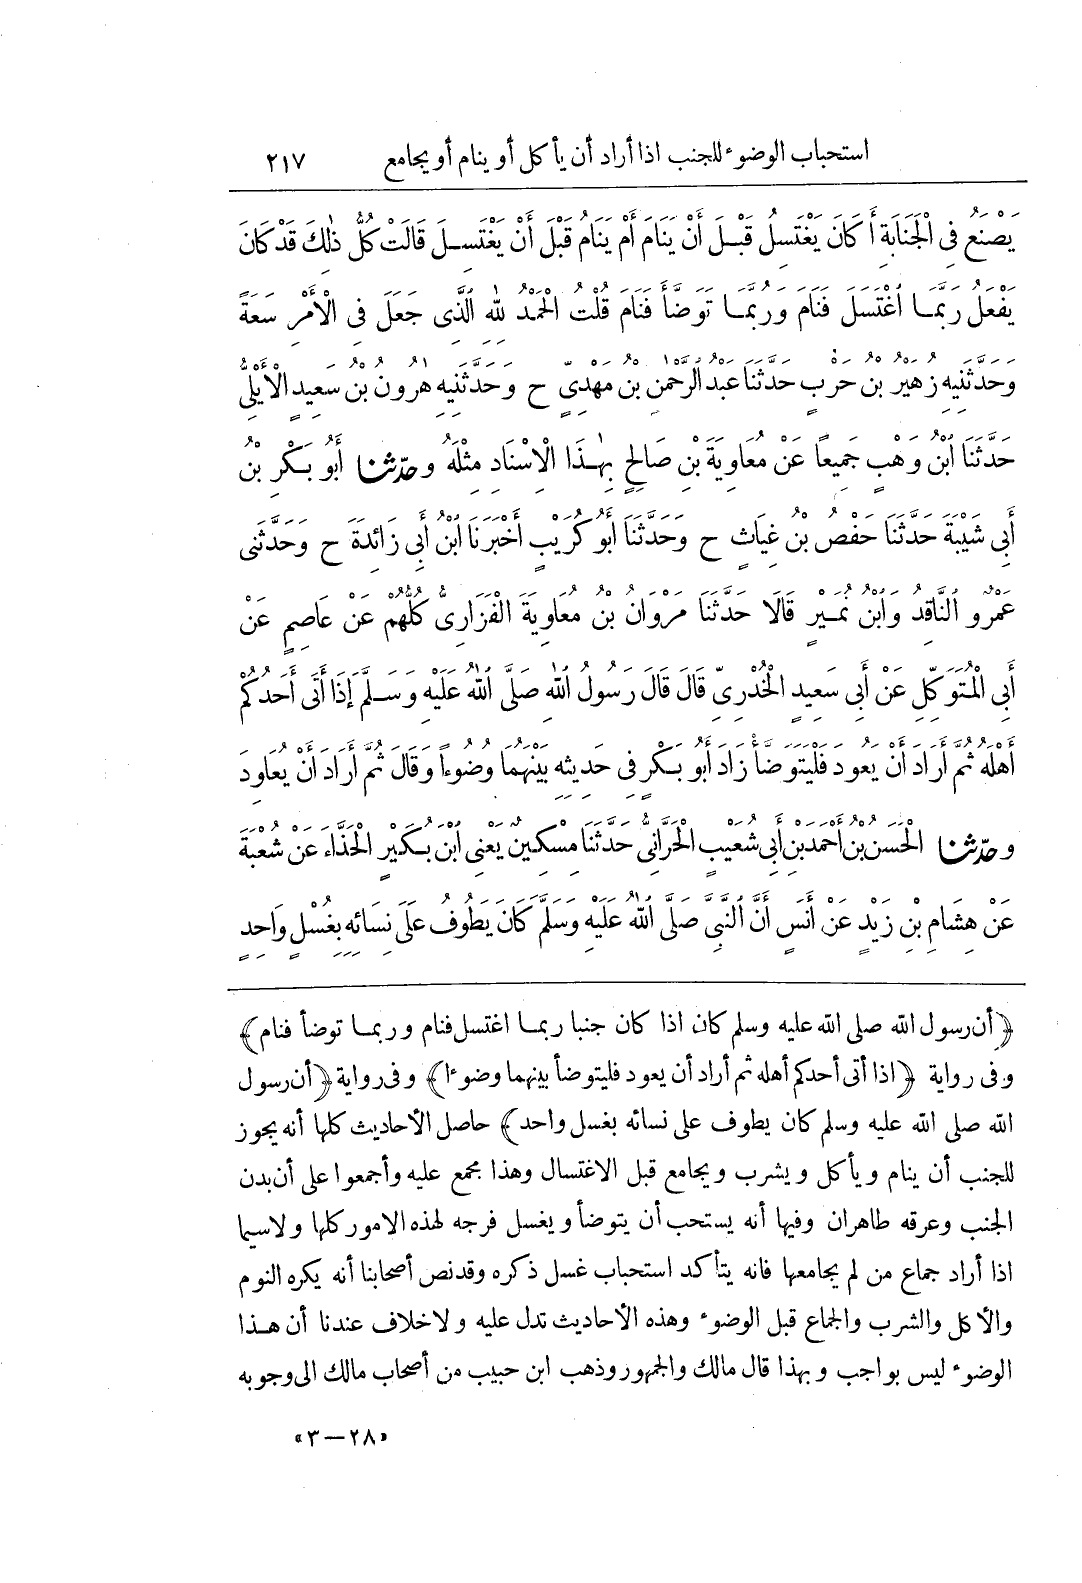 استحباب الوضوء للجنب اذا أراد أن يأكل أو ينام أو يجامع ٢١٧
يَصْنَعُ فِى الْجَنَابَةِ أَكَانَ يَغْتَسِلُ قَبْلَ أَنْ يَنَامَ أَمْ يَنَامُ قَبْلَ أَنْ يَغْتَسِلَ قَالَتْ كُلُّ ذٰلِكَ قَدْ كَانَ
يَفْعَلُ رُبَّمَا اغْتَسَلَ فَنَامَ وَرُبَّمَا تَوَضَّأَ فَنَامَ قُلْتُ الْحَمْدُ لِلّٰهِ الَّذِى جَعَلَ فِى الْأَمْرِ سَعَةً
وَحَدَّثَنِيهِ زُهَيْرُ بْنُ حَرْبٍ حَدَّثَنَا عَبْدُ الرَّحْمٰنِ بْنُ مَهْدِىٍّ ح وَحَدَّثَنِيهِ هٰرُونُ بْنُ سَعِيدٍ الْأَيْلِىُّ
حَدَّثَنَا ابْنُ وَهْبٍ جَمِيعًا عَنْ مُعَاوِيَةَ بْنِ صَالِحٍ بِهٰذَا الْإِسْنَادِ مِثْلَهُ وحدّثنا أَبُو بَكْرِ بْنُ
أَبِى شَيْبَةَ حَدَّثَنَا حَفْصُ بْنُ غِيَاثٍ ح وَحَدَّثَنَا أَبُو كُرَيْبٍ أَخْبَرَنَا ابْنُ أَبِى زَائِدَةَ ح وَحَدَّثَنِى
عَمْرٌو النَّاقِدُ وَابْنُ نُمَيْرٍ قَالَا حَدَّثَنَا مَرْوَانُ بْنُ مُعَاوِيَةَ الْفَزَارِىُّ كُلُّهُمْ عَنْ عَاصِمٍ عَنْ
أَبِى الْمُتَوَكِّلِ عَنْ أَبِى سَعِيدٍ الْخُدْرِىِّ قَالَ قَالَ رَسُولُ اللّٰهِ صَلَّى اللّٰهُ عَلَيْهِ وَسَلَّمَ إِذَا أَتَى أَحَدُكُمْ
أَهْلَهُ ثُمَّ أَرَادَ أَنْ يَعُودَ فَلْيَتَوَضَّأْ زَادَ أَبُو بَكْرٍ فِى حَدِيثِهِ بَيْنَهُمَا وُضُوءًا وَقَالَ ثُمَّ أَرَادَ أَنْ يُعَاوِدَ
وحدّثنا الْحَسَنُ بْنُ أَحْمَدَ بْنِ أَبِى شُعَيْبٍ الْحَرَّانِىُّ حَدَّثَنَا مِسْكِينٌ يَعْنِى ابْنَ بُكَيْرٍ الْحَذَّاءَ عَنْ شُعْبَةَ
عَنْ هِشَامِ بْنِ زَيْدٍ عَنْ أَنَسٍ أَنَّ النَّبِىَّ صَلَّى اللّٰهُ عَلَيْهِ وَسَلَّمَ كَانَ يَطُوفُ عَلَى نِسَائِهِ بِغُسْلٍ وَاحِدٍ
﴿أن رسول الله صلى الله عليه وسلم كان اذا كان جنبا ربما اغتسل فنام وربما توضأ فنام﴾
وفى رواية ﴿اذا أتى أحدكم أهله ثم أراد أن يعود فليتوضأ بينهما وضوءا﴾ وفى رواية ﴿أن رسول
الله صلى الله عليه وسلم كان يطوف على نسائه بغسل واحد﴾ حاصل الأحاديث كلها أنه يجوز
للجنب أن ينام ويأكل ويشرب ويجامع قبل الاغتسال وهذا مجمع عليه وأجمعوا على أن بدن
الجنب وعرقه طاهران وفيها أنه يستحب أن يتوضأ ويغسل فرجه لهذه الامور كلها ولاسيما
اذا أراد جماع من لم يجامعها فانه يتأكد استحباب غسل ذكره وقد نص أصحابنا أنه يكره النوم
والأكل والشرب والجماع قبل الوضوء وهذه الأحاديث تدل عليه ولا خلاف عندنا أن هذا
الوضوء ليس بواجب وبهذا قال مالك والجمهور وذهب ابن حبيب من أصحاب مالك الى وجوبه
«٢٨ – ٣»